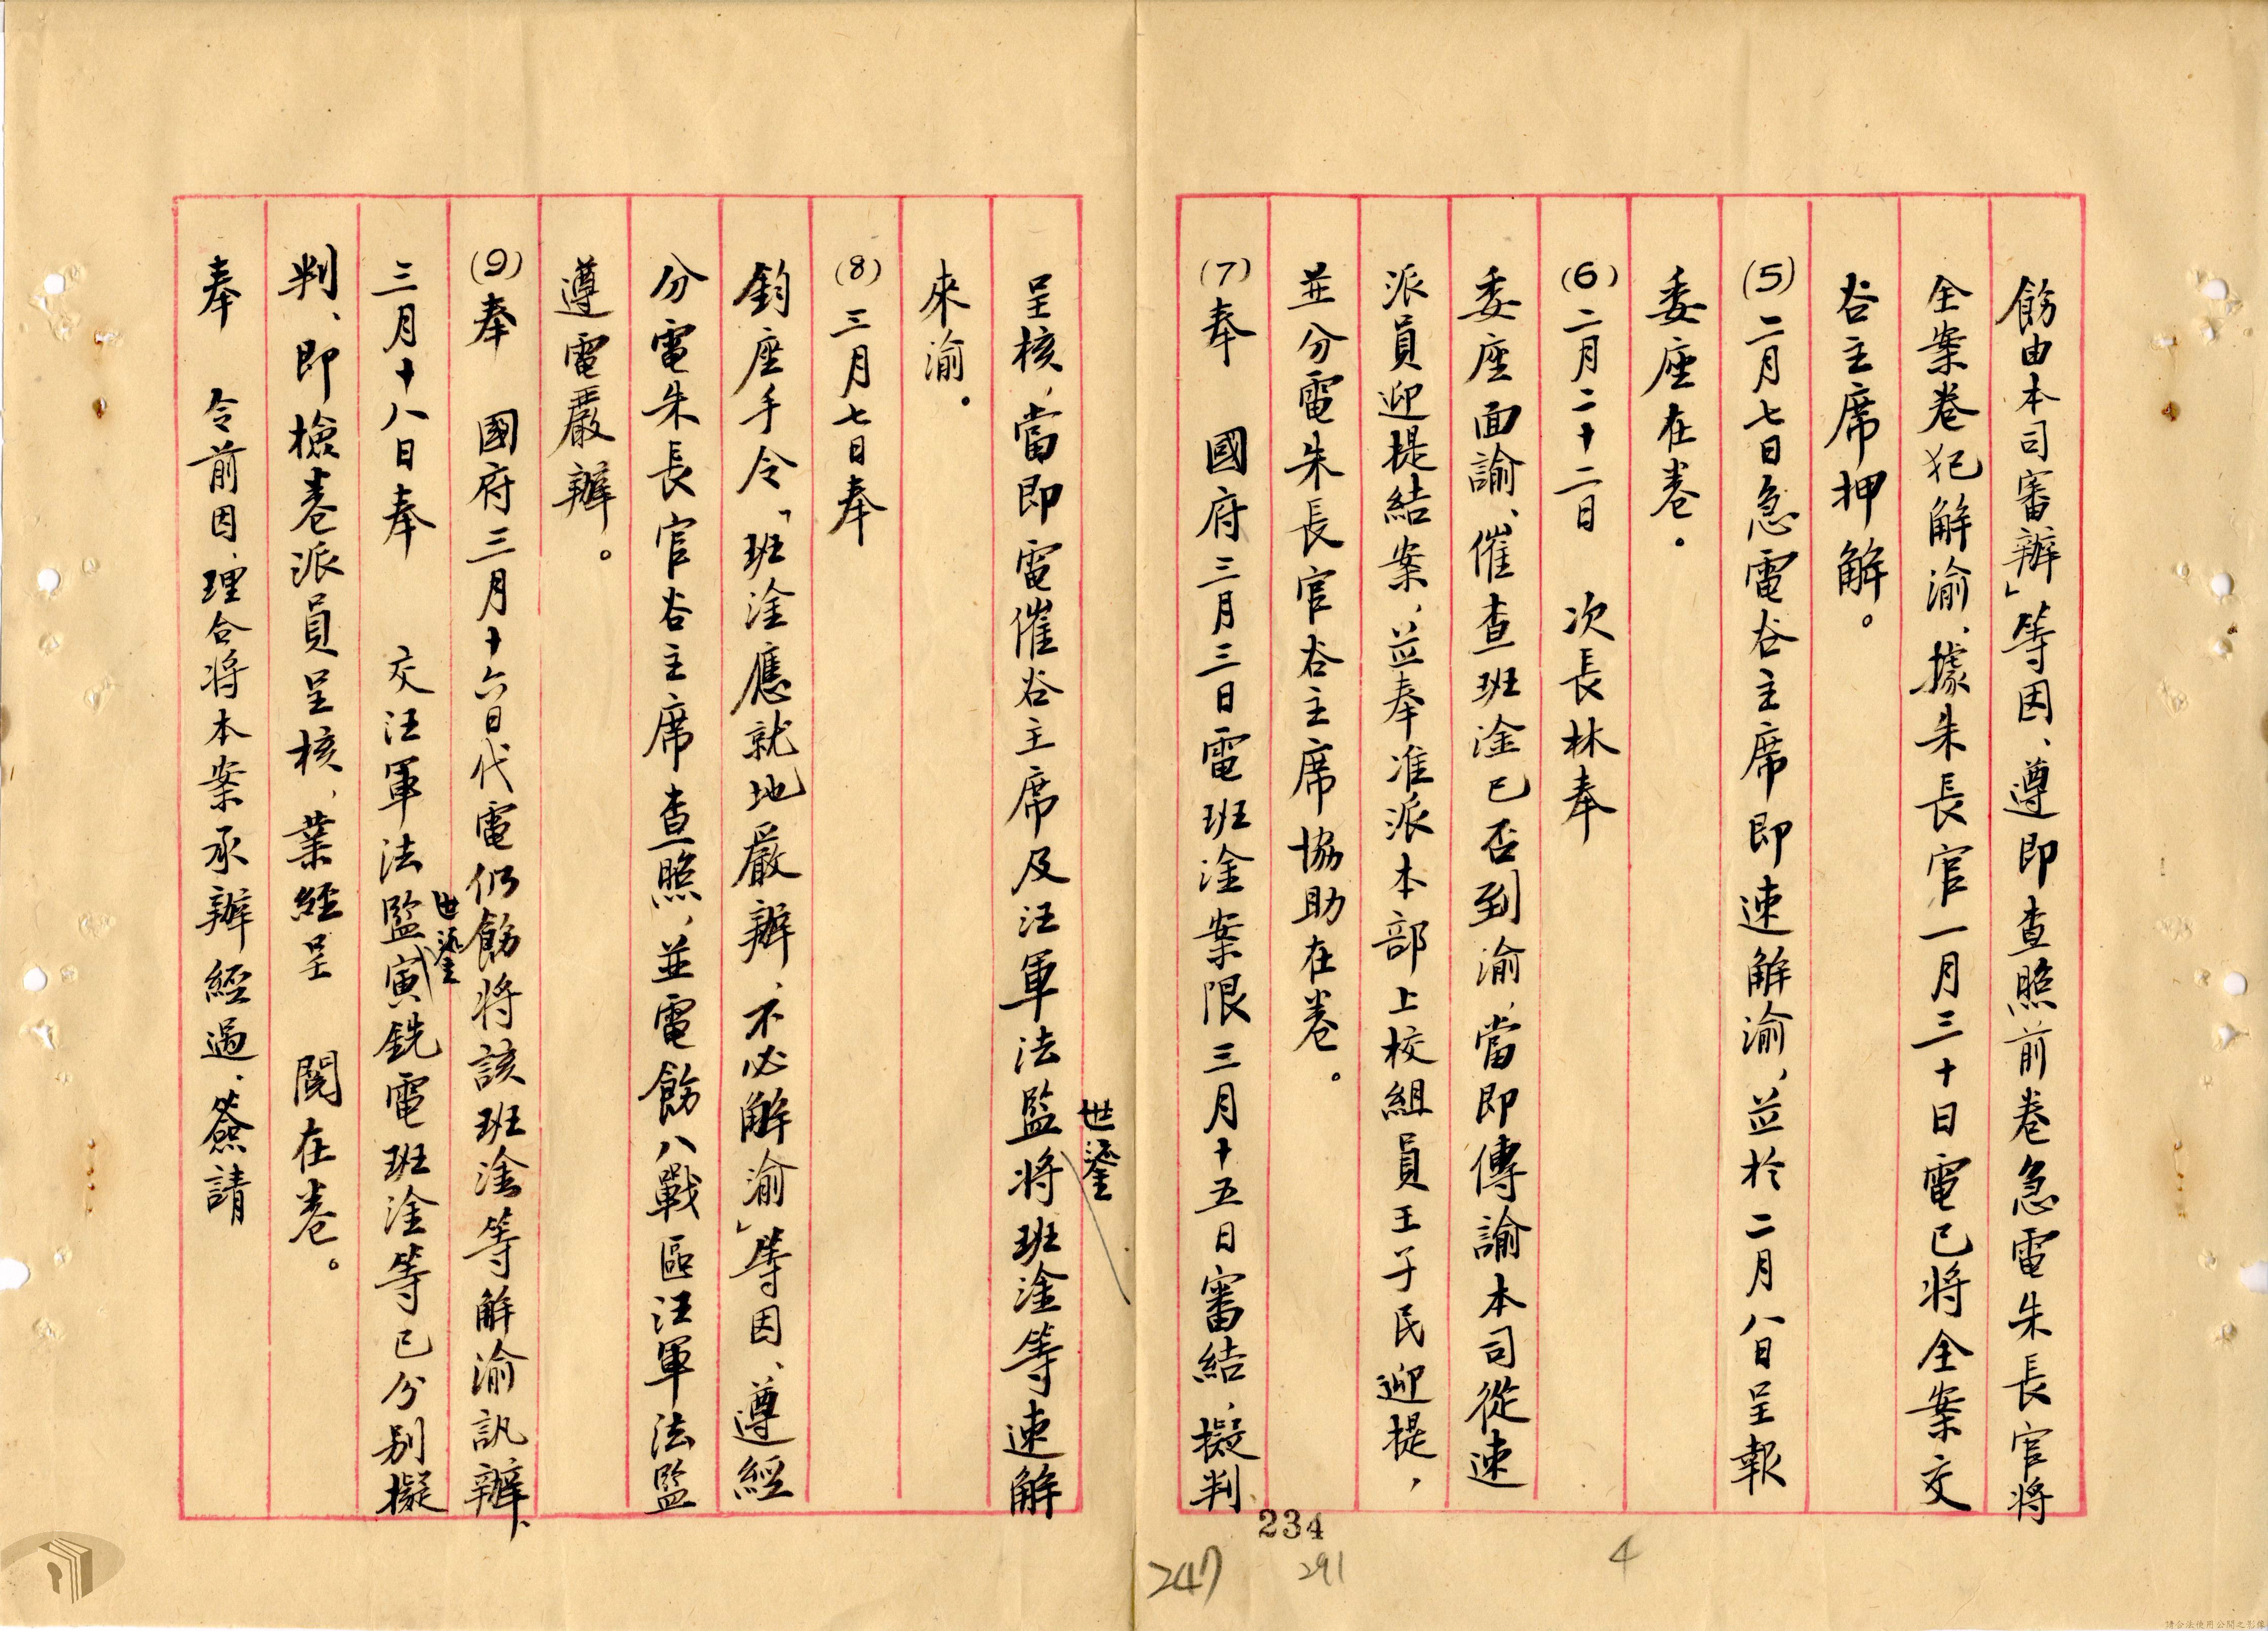 飭由本司審辦」等因、遵即查照前卷急電朱長官將
全案卷犯解渝、據朱長官一月三十日電已將全案交
谷主席押解。
(5)二月七日急電谷主席即速解渝，並於二月八日呈報
委座在卷。
(6)二月二十二日　次長林奉
委座面諭、催查班淦已否到渝，當即傳諭本司從速
派員迎提結案，並奉准派本部上校組員王子民迎提，
並分電朱長官谷主席協助在卷。
(7)奉　國府三月三日電班淦案限三月十五日審結，擬判
呈核，當即電催谷主席及汪軍法監世鎏將班淦等速解
來渝。
(8)三月七日奉
鈞座手令「班淦應就地嚴辦，不必解渝」等因、遵經
分電朱長官谷主席查照，並電飭八戰區汪軍法監
遵電嚴辦。
(9)奉　國府三月十六日代電仍飭將該班淦等解渝訊辦、
三月十八日奉　交汪軍法監世鎏寅銑電班淦等已分別擬
判、即檢卷派員呈核，業經呈　閱在卷。
奉　令前因、理合將本案承辦經過、簽請
234
247
291
4
請合法使用公開之影像